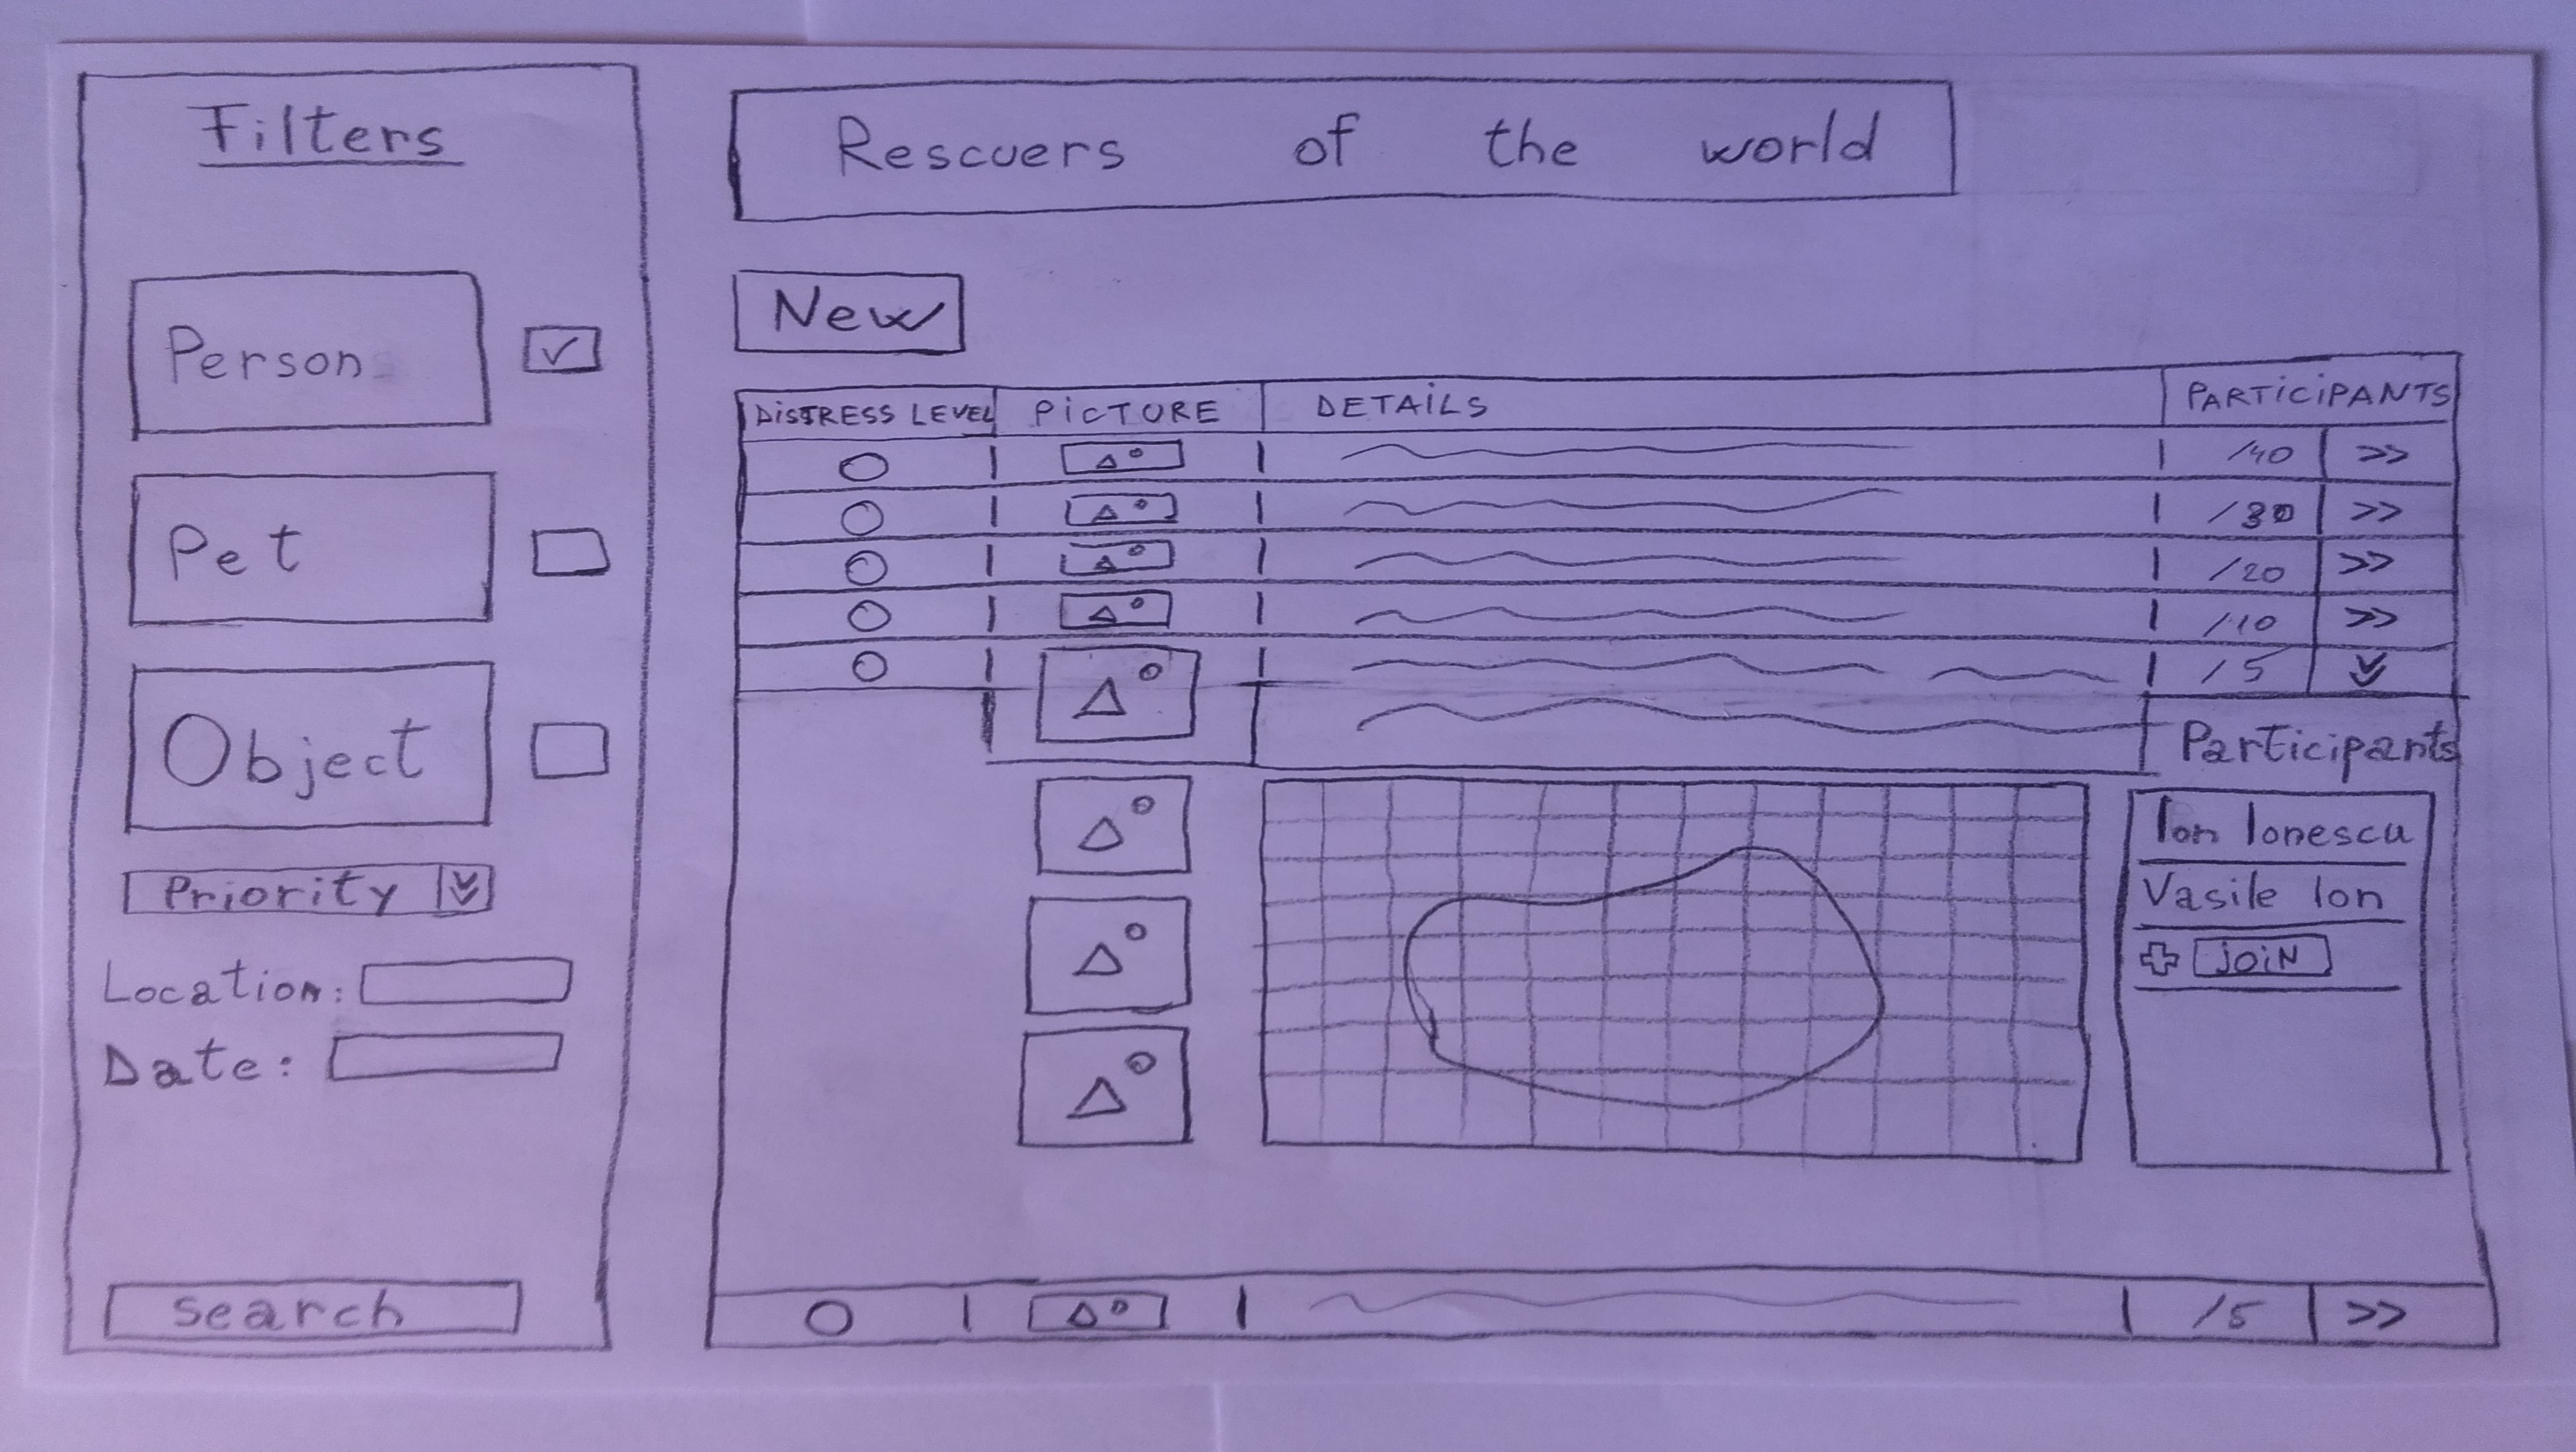 Filters
Person
Pet
Object
Priority
Location:
Date:
Search
Rescuers of the world
New
DISTRESS LEVEL PICTURE DETAILS PARTICIPANTS
/40 >>
/30 >>
/20 >>
/10 >>
/5
Participants
Ion Ionescu
Vasile Ion
JOIN
/5 >>